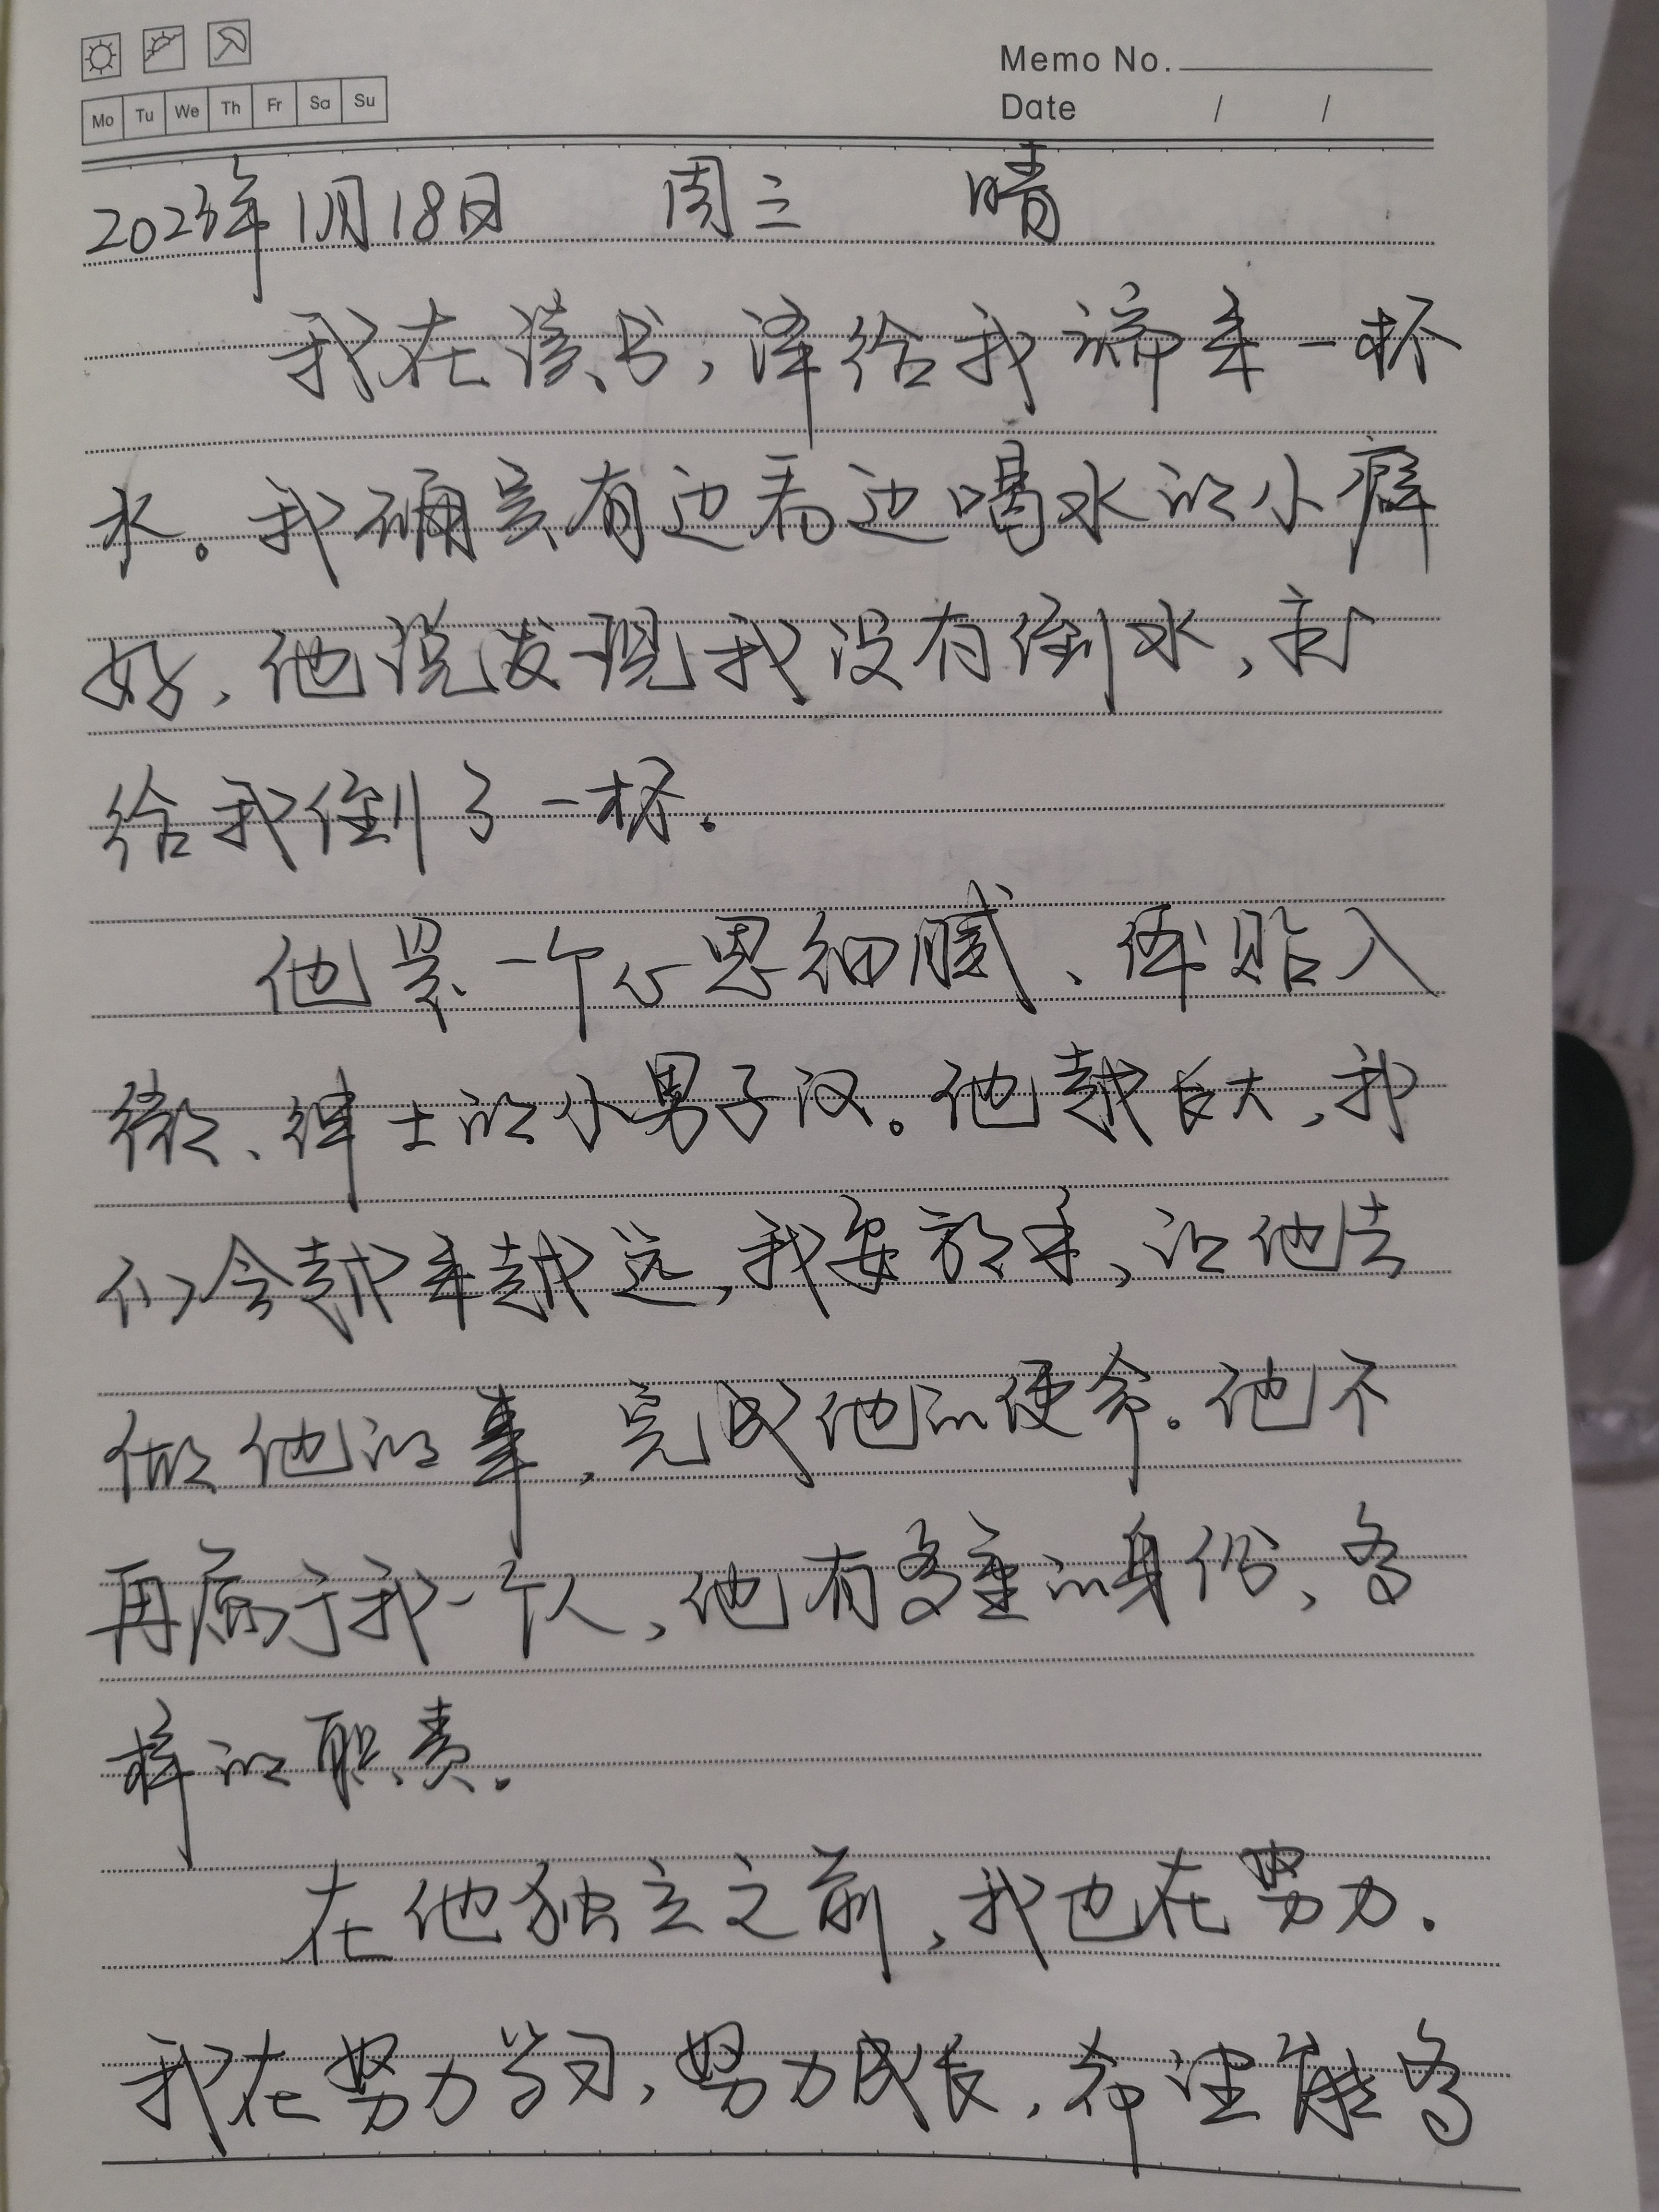 Mo Tu We Th Fr Sa Su
Memo No.
Date / /
2023年1月18日 周三 晴
我在读书，泽给我端来一杯
水。我确实有边看边喝水的小癖
好，他说发现我没有倒水，就
给我倒了一杯。
他是一个心思细腻、体贴入
微、绅士的小男子汉。他越长大，我
们会越来越远，我要放手，让他去
做他的事，完成他的使命。他不
再属于我一个人，他有多重的身份、多
样的职责。
在他独立之前，我也在努力.
我在努力学习，努力成长，希望能多